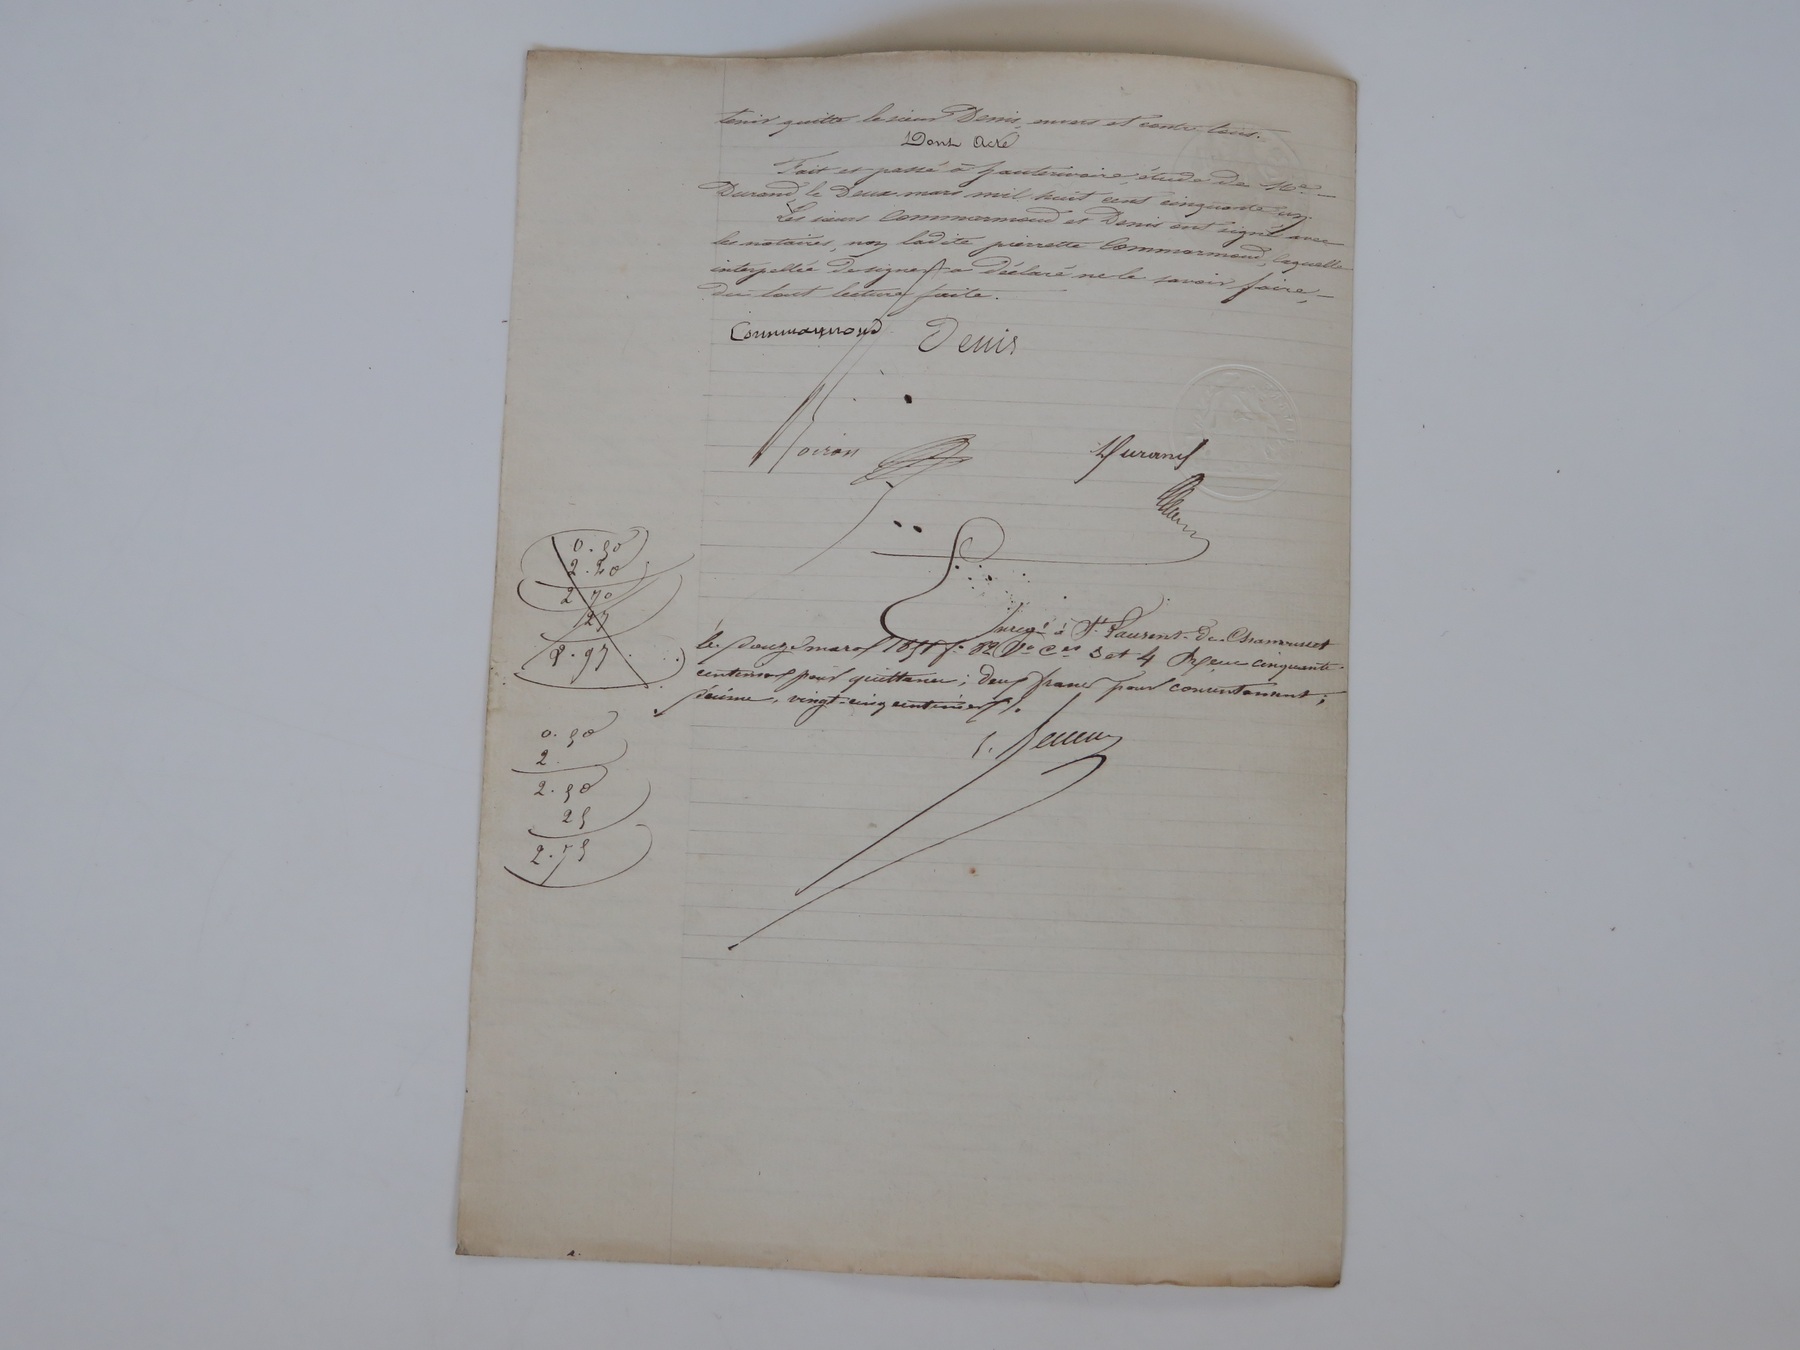 tenir quitte le sieur Denis, envers et contre tous.
Dont Acte
Fait et passé à hauterivoire, étude de Me
Durand, le Deux mars mil huit cent cinquante un.
Les sieurs Commarmond et Denis ont signé avec
les notaires, non ladite pierrette Commarmond, laquelle
interpellée de signer a déclaré ne le savoir faire,
du tout lecture faite.
Commarmond Denis
Voiron Durand
Enregé à St Laurent-de-Chamousset
le douze mars 1851 fo 82 Vo Ces 3 et 4 Reçu cinquante
centimes pour quittance; deux francs pour consentement;
décime, vingt-cinq centimes.
0.50
2.20
2 70
27
2.97
0.50
2.
2.50
25
2.75